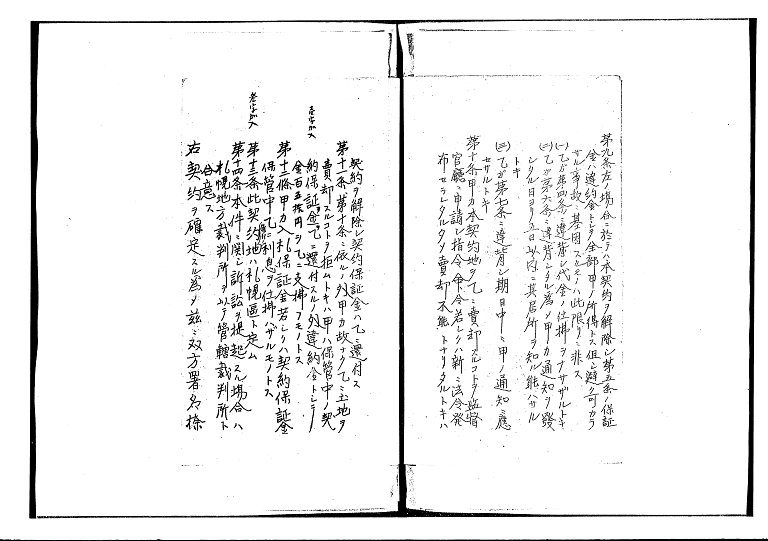 第九条左ノ場合ニ於テハ本契約ヲ解除シ第五条ノ保証
金ハ違約金トシテ全部甲ノ所得トス但シ避ク可カラ
サル事故ニ基因スルモノハ此限リニ非ス
(一)乙ガ第四条ニ違背シ代金ノ仕拂ヲナサザルトキ
(二)乙ガ第六条ニ違背シタル為メ甲カ通知ヲ發
シタル日ヨリ五日以内ニ其居所ヲ知ル能ハサル
トキ
(三)乙ガ第七条ニ違背シ期日中ニ甲ノ通知ニ應
セザルトキ
第十条甲カ本契約地ヲ乙ニ賣却スルコトヲ監督
官廳ニ申請シ指令命令若シクハ新ニ法令発
布セラレタルタメ賣却不能トナリタルトキハ
契約ヲ解除シ契約保証金ハ乙ニ還付ス
第十一条第十条ニ依ルノ外甲カ故ナク乙ニ土地ヲ
賣却スルコトヲ拒ムトキハ甲ハ保管中ノ契
約保証金ヲ乙ニ還付スルノ外違約金トシテ
金百五拾円ヲ乙ニ支拂フモノトス
第十二條甲カ入札保証金若シクハ契約保証金
保管中乙ニ利息ヲ仕拂ハザルモノトス
第十三条此契約地ハ札幌區ト定ム
第十四条本件ニ関シ訴訟ヲ提起スル場合ハ
札幌地方裁判所ヲ以テ管轄裁判所ト
合意ス
右契約ヲ確定スル為メ茲ニ双方署名捺